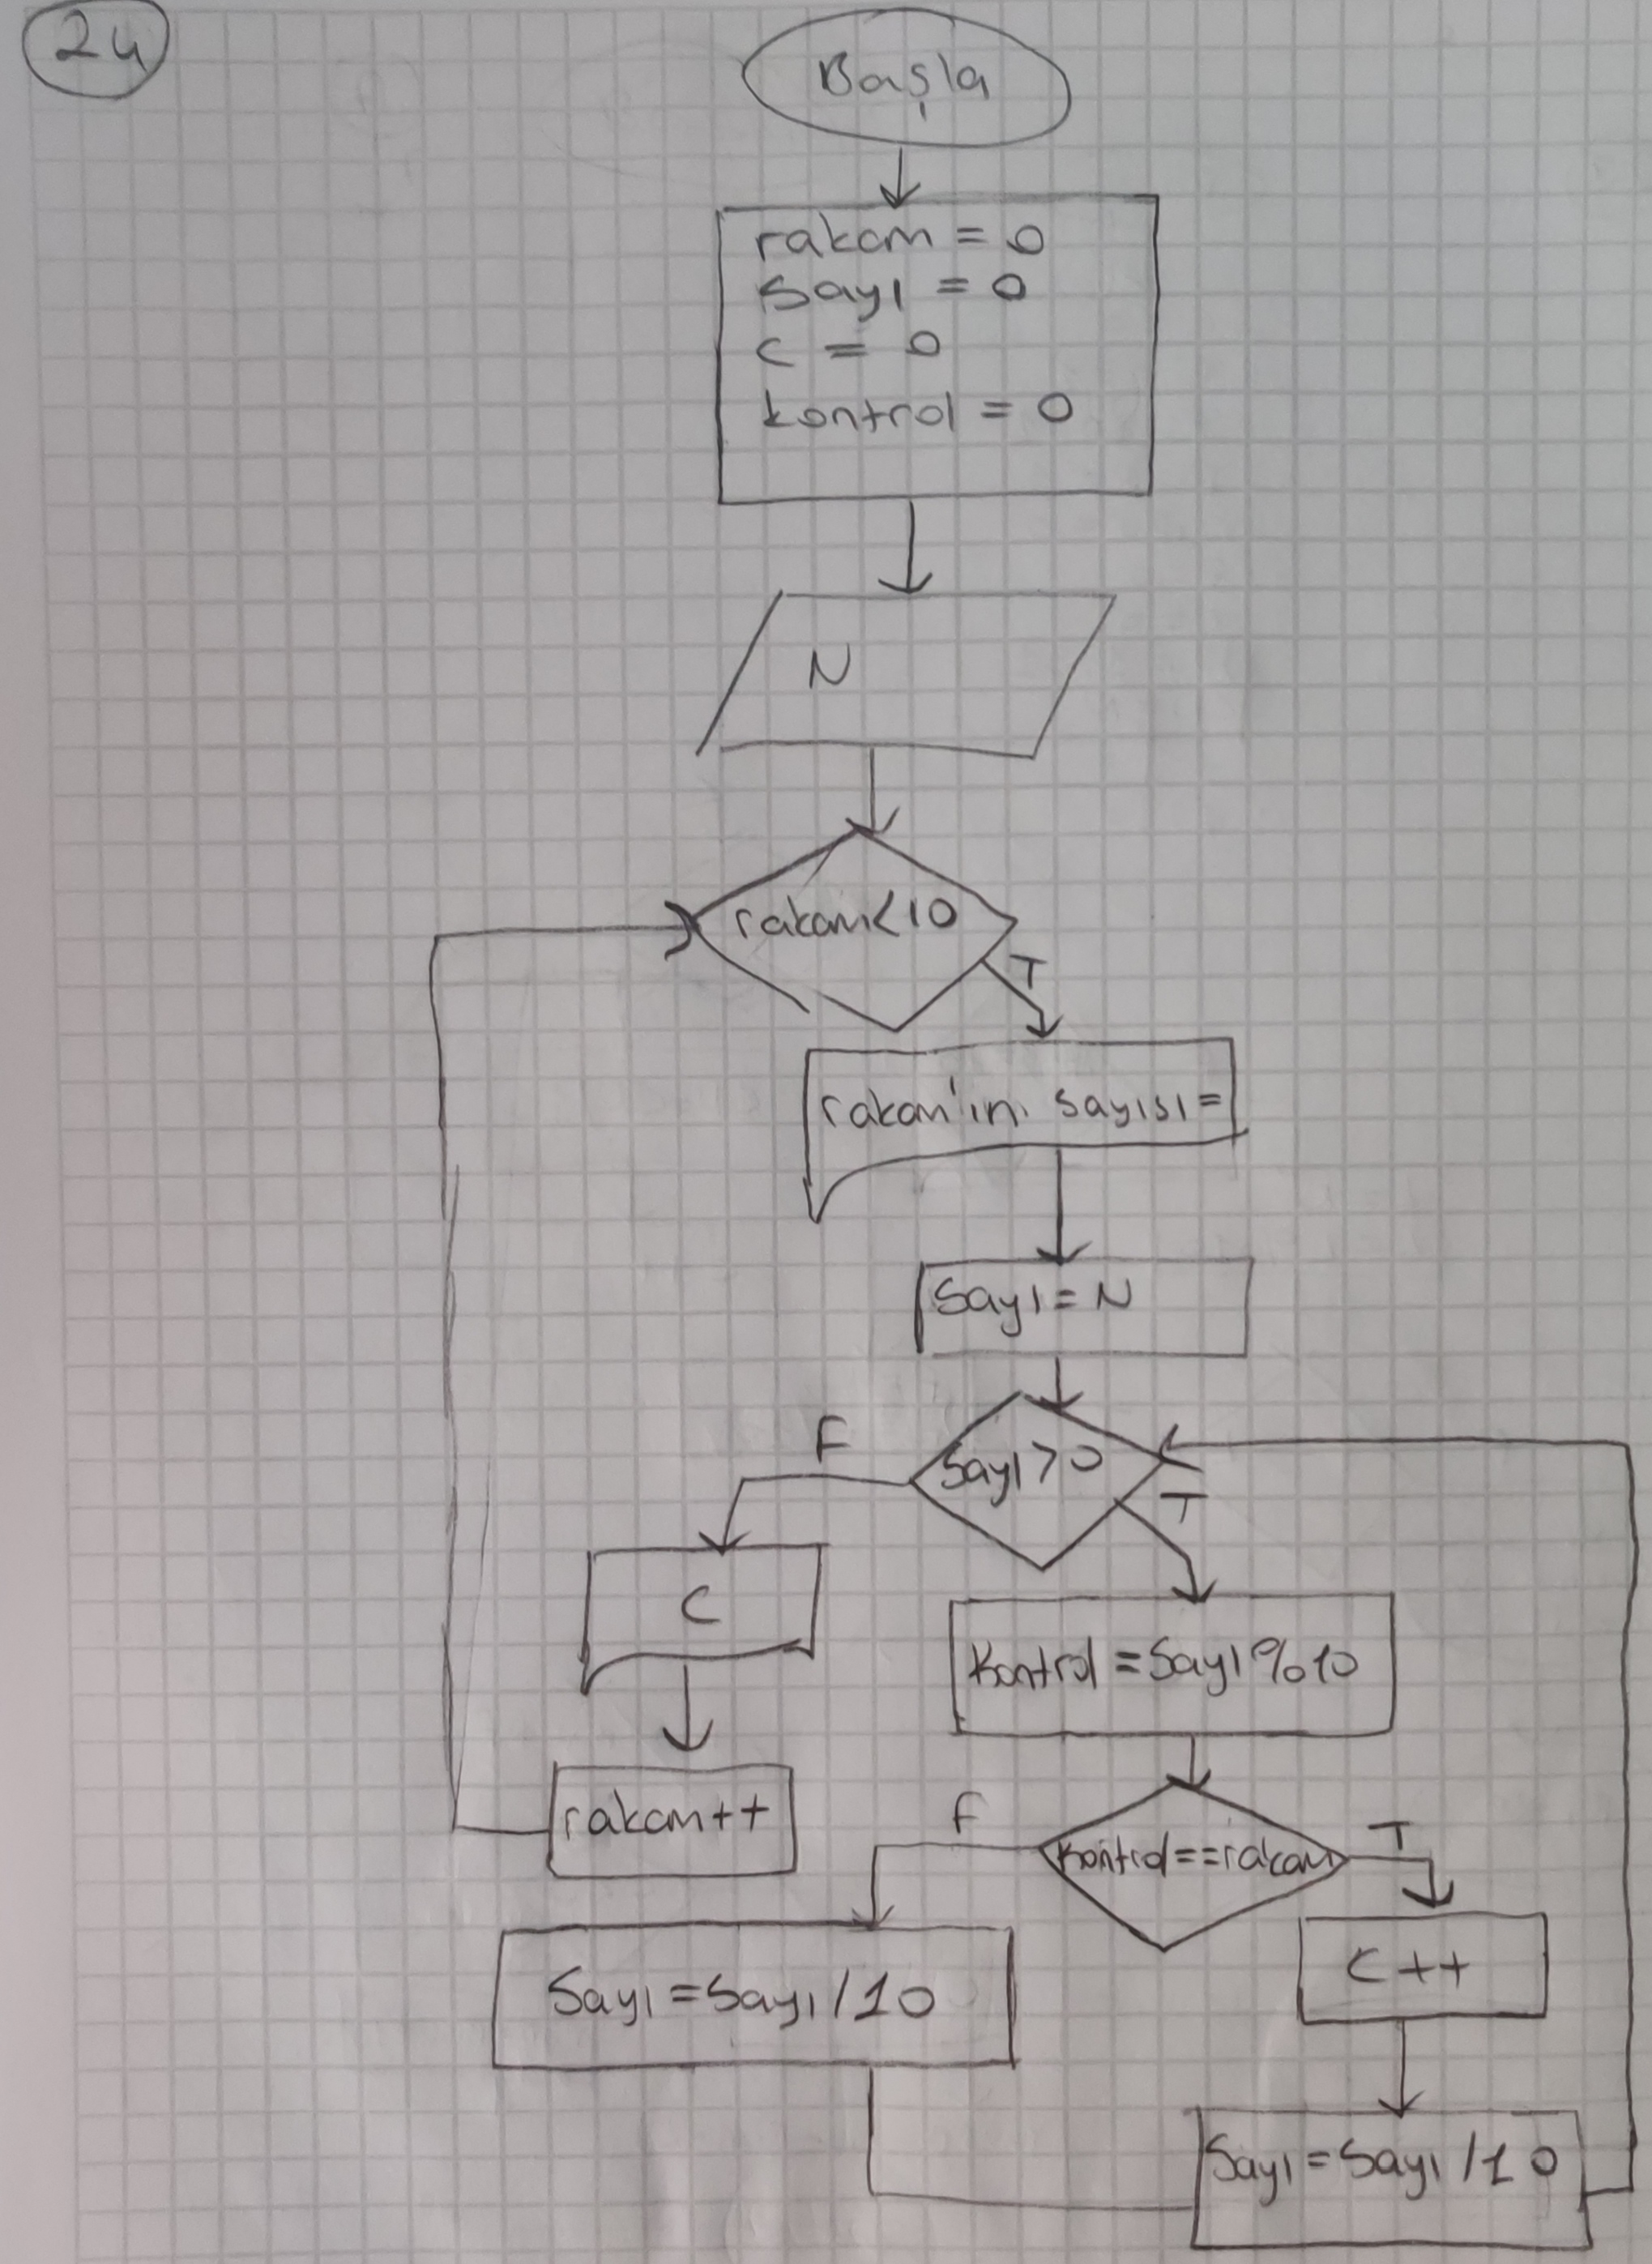 24
Başla
rakam = 0
Sayı = 0
c = 0
kontrol = 0
N
rakam<10
T
rakam'ın sayısı=
Sayı=N
Sayı>0
F
T
C
Kontrol=Sayı%10
rakam++
Kontrol==rakam
F
T
Sayı=Sayı/10
C++
Sayı=Sayı/10